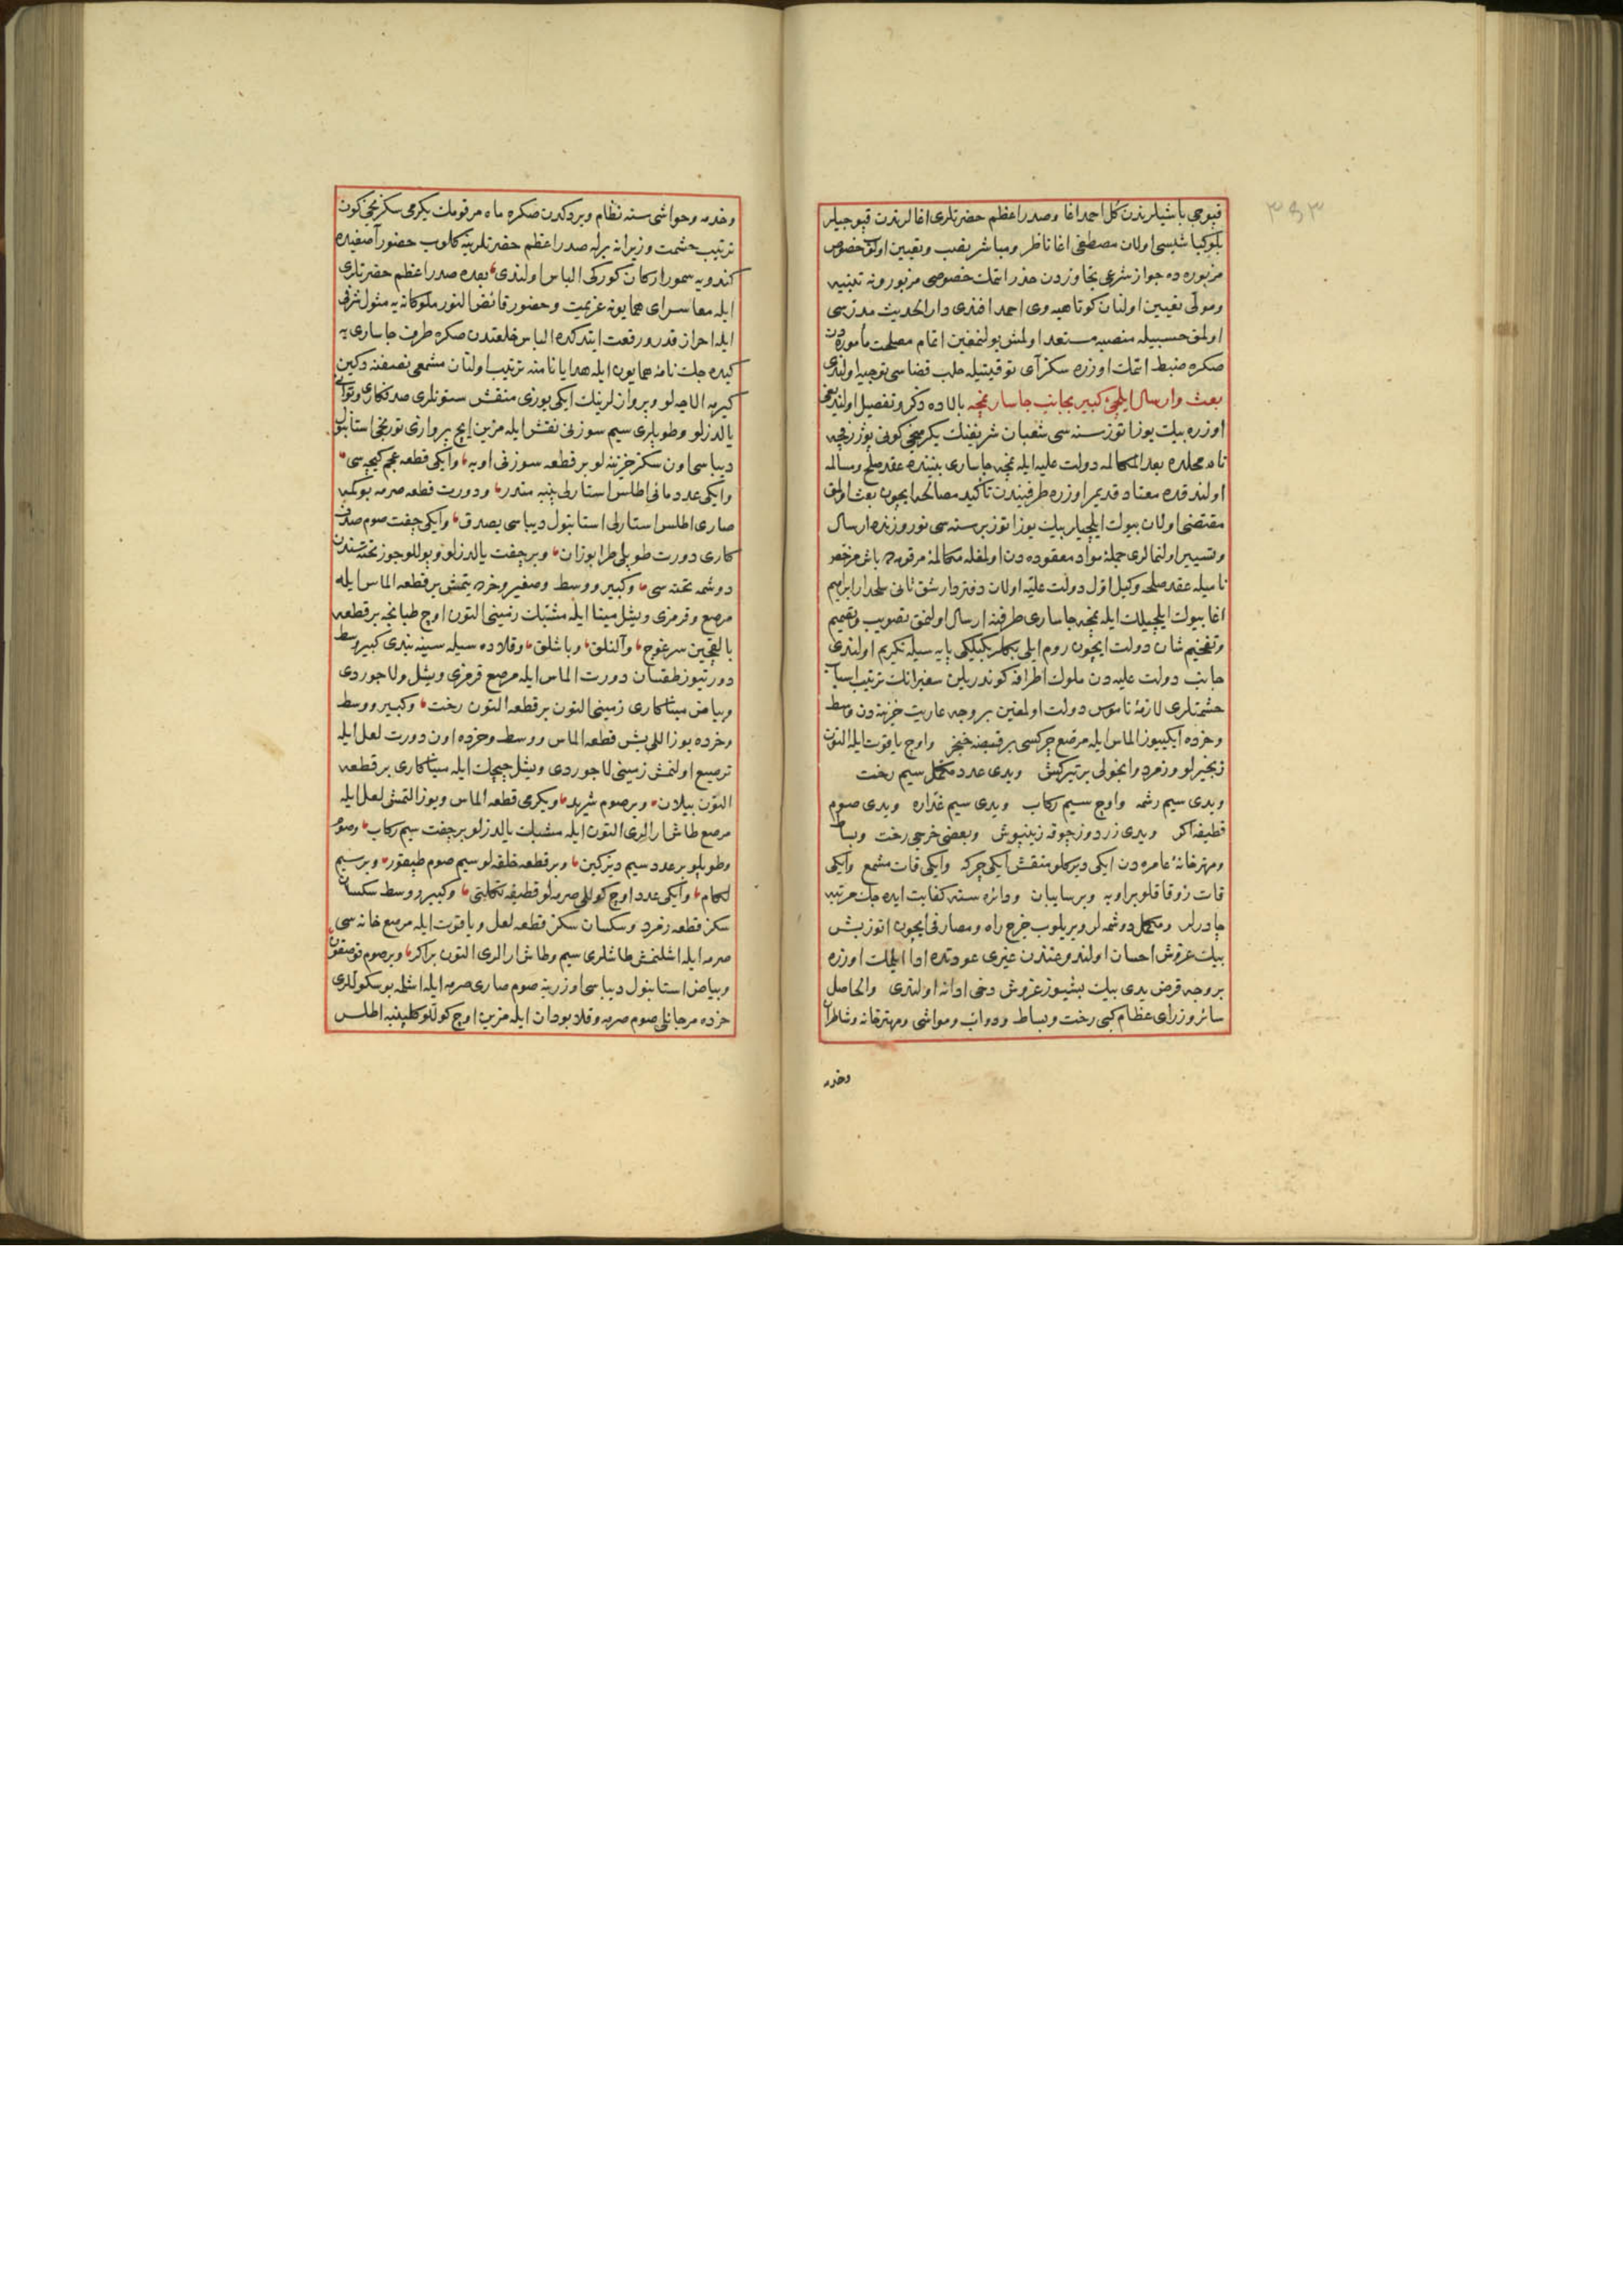 ٣٥٣
قپوجی باشیلرندن کل احمد اغا وصدراعظم حضرتلری اغالرندن قپوجیلر
بلوکباشیسی اولان مصطفی اغا ناظر ومباشر نصب وتعیین اولنوب خصوص
مزبورده جواز شرعی تجاوزدن حذر اتمک خصوصی مزبورونه تنبیه
ومولی تعیین اولنان کوتاهیه وی احمد افندی دار الحدیث مدرسی
اولمق حسبیله منصبه مستعد اولمش بولنمغین اتمام مصلحت مأموره دن
صکره ضبط اتمک اوزره سکز آی توقیتیله حلب قضاسی توجیه اولندی
بعث وارسال ایلچئ کبیر بجانب جاسار نمچه بالاده ذکر وتفصیل اولندیغی
اوزره بیک یوز اتوز سنه سی شعبان شریفنک یکرمنجی کونی
نام محلده بعد المکالمه دولت علیه ایله نمچه جاساری بیننده عقد صلح ومسالمه
اولندقده معتاد قدیم اوزره طرفیندن تأکید مصالحه ایچون بعث اولنمق
مقتضی اولان بیوک ایلچیلر بیک یوز اتوز بر سنه سی نوروزنده ارسال
وتسییر اولنمالری جملۀ مواد معقوده دن اولمغله مکالمۀ مرقومه باش مرخص
نامیله عقد صلحه وکیل اول دولت علیه اولان دفتردار شق ثانی سلحدار ابراهیم
اغا بیوک ایلچیلک ایله نمچه جاساری طرفنه ارسال اولنمق تصویب وتصمیم
وتفخیم شان دولت ایچون روم ایلی بکلربکیلکی پایه سیله تکریم اولندی
جانب دولت علیه دن ملوک اطرافه کوندریلن سفیرانک ترتیب اسباب
حشمتلری لازمۀ ناموس دولت اولمغین بر وجه عاریت خزینه دن وسط
وخرده ایکییوز الماس ایله مرصع چرکسی بر قبضه خنجر واوچ یاقوت ایله التون
زنجیرلو وزمرد وانجولی بر تیرکش ویدی عدد مکمل سیم رخت
ویدی سیم رشمه واوچ سیم رکاب ویدی سیم غداره ویدی صوم
قطیفه اکر ویدی زردوز چوقه زینپوش وبعضی خرجی رخت وبساط
ومهترخانۀ عامره دن ایکی دیرکلو منقش ایکی چرکه وایکی قات مشمع وایکی
قات زوقاقلو بر اوبه وبر سایبان ودائره سنه کفایت ایده جک مرتبه
چادرلر ومکمل دوشمه لر ویریلوب خرج راه ومصارفی ایچون اتوز بش
بیک غروش احسان اولندوغندن غیری عودتده ادا ایلمک اوزره
بر وجه قرض یدی بیک بشیوز غروش دخی ادانه اولندی والحاصل
سائر وزرای عظام کبی رخت وبساط ودواب ومواشی ومهترخانه وشاطران
وخدمه
وخدمه وحواشی سنه نظام ویردکدن صکره ماه مرقومک یکرمی سکزنجی کون
ترتیب حشمت وزیرانه برله صدراعظم حضرتلرینه کلوب حضور آصفیده
کندویه سمور ارکان کورکی الباس اولندی بعده صدراعظم حضرتلری
ایله معا سرای همایونه عزیمت وحضور فائض النور ملوکانه یه مثول شرفی
ایله احراز قدر ورفعت ایتدکده الباس خلعتدن صکره طرف جاساری یه
کیده جک نامۀ همایون ایله هدایانامه ترتیب اولنان مشمعی
کیرمه الاجه لو وپروازلرینک ایکی یوزی منقش ستونلری صدفکاری
یالدزلو وطوپلری سیم سوزنی نقش ایله مزین ایچ پروازی نورنجی استانبول
دیباسی اون سکز خزینه لو بر قطعه سوزنی اوبه وایکی قطعه عجم کیچه سی
وایکی عدد مائی اطلس استارلی پنبه مندر ودورت قطعه صرمه بوکمه
صاری اطلس استارلی استانبول دیباسی یصدق وایکی جفت صوم صدف
کاری دورت طوپلی طرابوزان وبر جفت یالدزلو وپوللو جوز تخته سندن
دوشمه تخته سی وکبیر ووسط وصغیر وخرده یتمش بر قطعه الماس ایله
مرصع وقرمزی ویشل مینا ایله مشبک زمینی التون اوچ طبانجه بر قطعه
بالقچین سرغوج وآلنلق وباشلق وقلاده سیله سینه بندی کبیر وسط
دورتیوز طقسان دورت الماس ایله مرصع قرمزی ویشل ولاجوردی
وبیاض میناکاری زمینی التون بر قطعه التون رخت وکبیر ووسط
وخرده یوز اللی بش قطعه الماس ووسط وخرده اون دورت لعل ایله
ترصیع اولنمش زمینی لاجوردی ویشل چیچک ایله میناکاری بر قطعه
التون بیلان وبر صوم شرید ویکرمی قطعه الماس ویوز التمش لعل ایله
مرصع طاش ارالری التون ایله مشبک یالدزلو بر جفت سیم رکاب وصوم
وطوپلو بر عدد سیم دیزکین وبر قطعه خلقه لو سیم صوم طپقور وبر سیم
لکام وایکی عدد اوچ کوللی صرمه لو قطیفه تکلتی وکبیر ووسط سکسان
سکز قطعه زمرد وسکسان سکز قطعه لعل ویاقوت ایله مرصع خانه سی
صرمه ایله اشلنمش طاشلری سیم وطاش ارالری التون بر اکر وبر صوم قوصقون
وبیاض استانبول دیباسی اوزرینه صوم صاری صرمه ایله اشلمه بوسکوللری
خرده مرجانلی صوم صرمه وقلابودان ایله مزین اوچ کوللو کلیپنبه اطلس